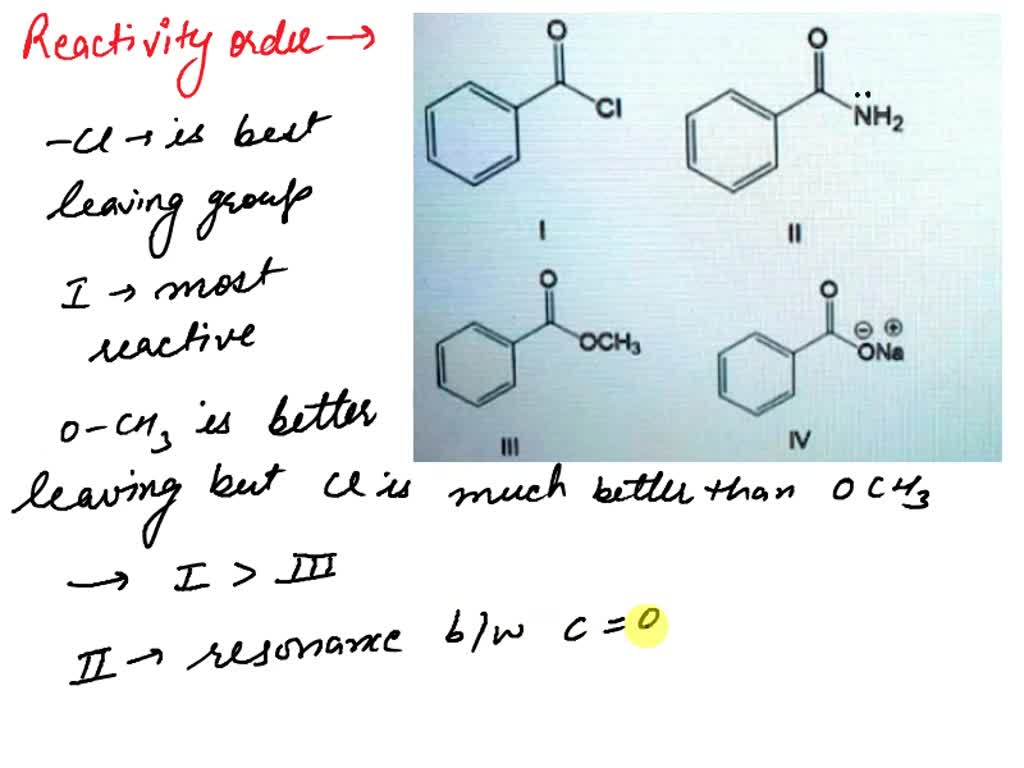 Reactivity order →
-Cl → is best
leaving group
I → most
reactive
O-CH3 is better
leaving but Cl is much better than OCH3
→ I > III
II → resonance b/w C=O
O
Cl
I
O
NH2
II
O
OCH3
III
O
⊖ ⊕
ONa
IV